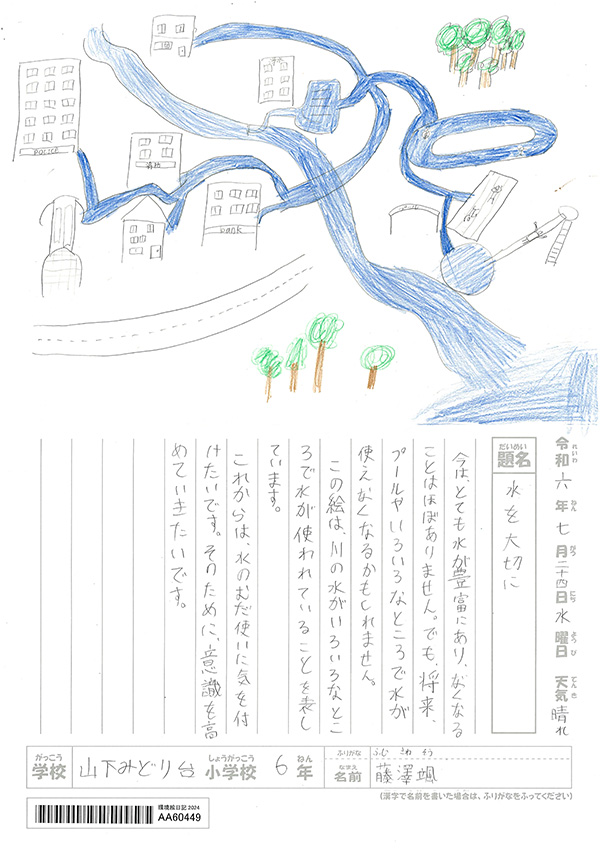 POLICE
消防
bank
令和六年七月二十四日水曜日 天気晴れ
れいわ ねん がつ にち ようび てんき
だいめい
題名
水を大切に
今は、とても水が豊富にあり、なくなる
ことはほぼありません。でも、将来、
プールやいろいろなところで水が
使えなくなるかもしれません。
この絵は、川の水がいろいろなとこ
ろで水が使われていることを表し
ています。
これからは、水のむだ使いに気を付
けたいです。そのために、意識を高
めていきたいです。
がっこう しょうがっこう ねん ふりがな ふじ さわ そう
学校 山下みどり台 小学校 6年 なまえ 名前 藤澤颯
(漢字で名前を書いた場合は、ふりがなをふってください)
環境絵日記 2024
AA60449